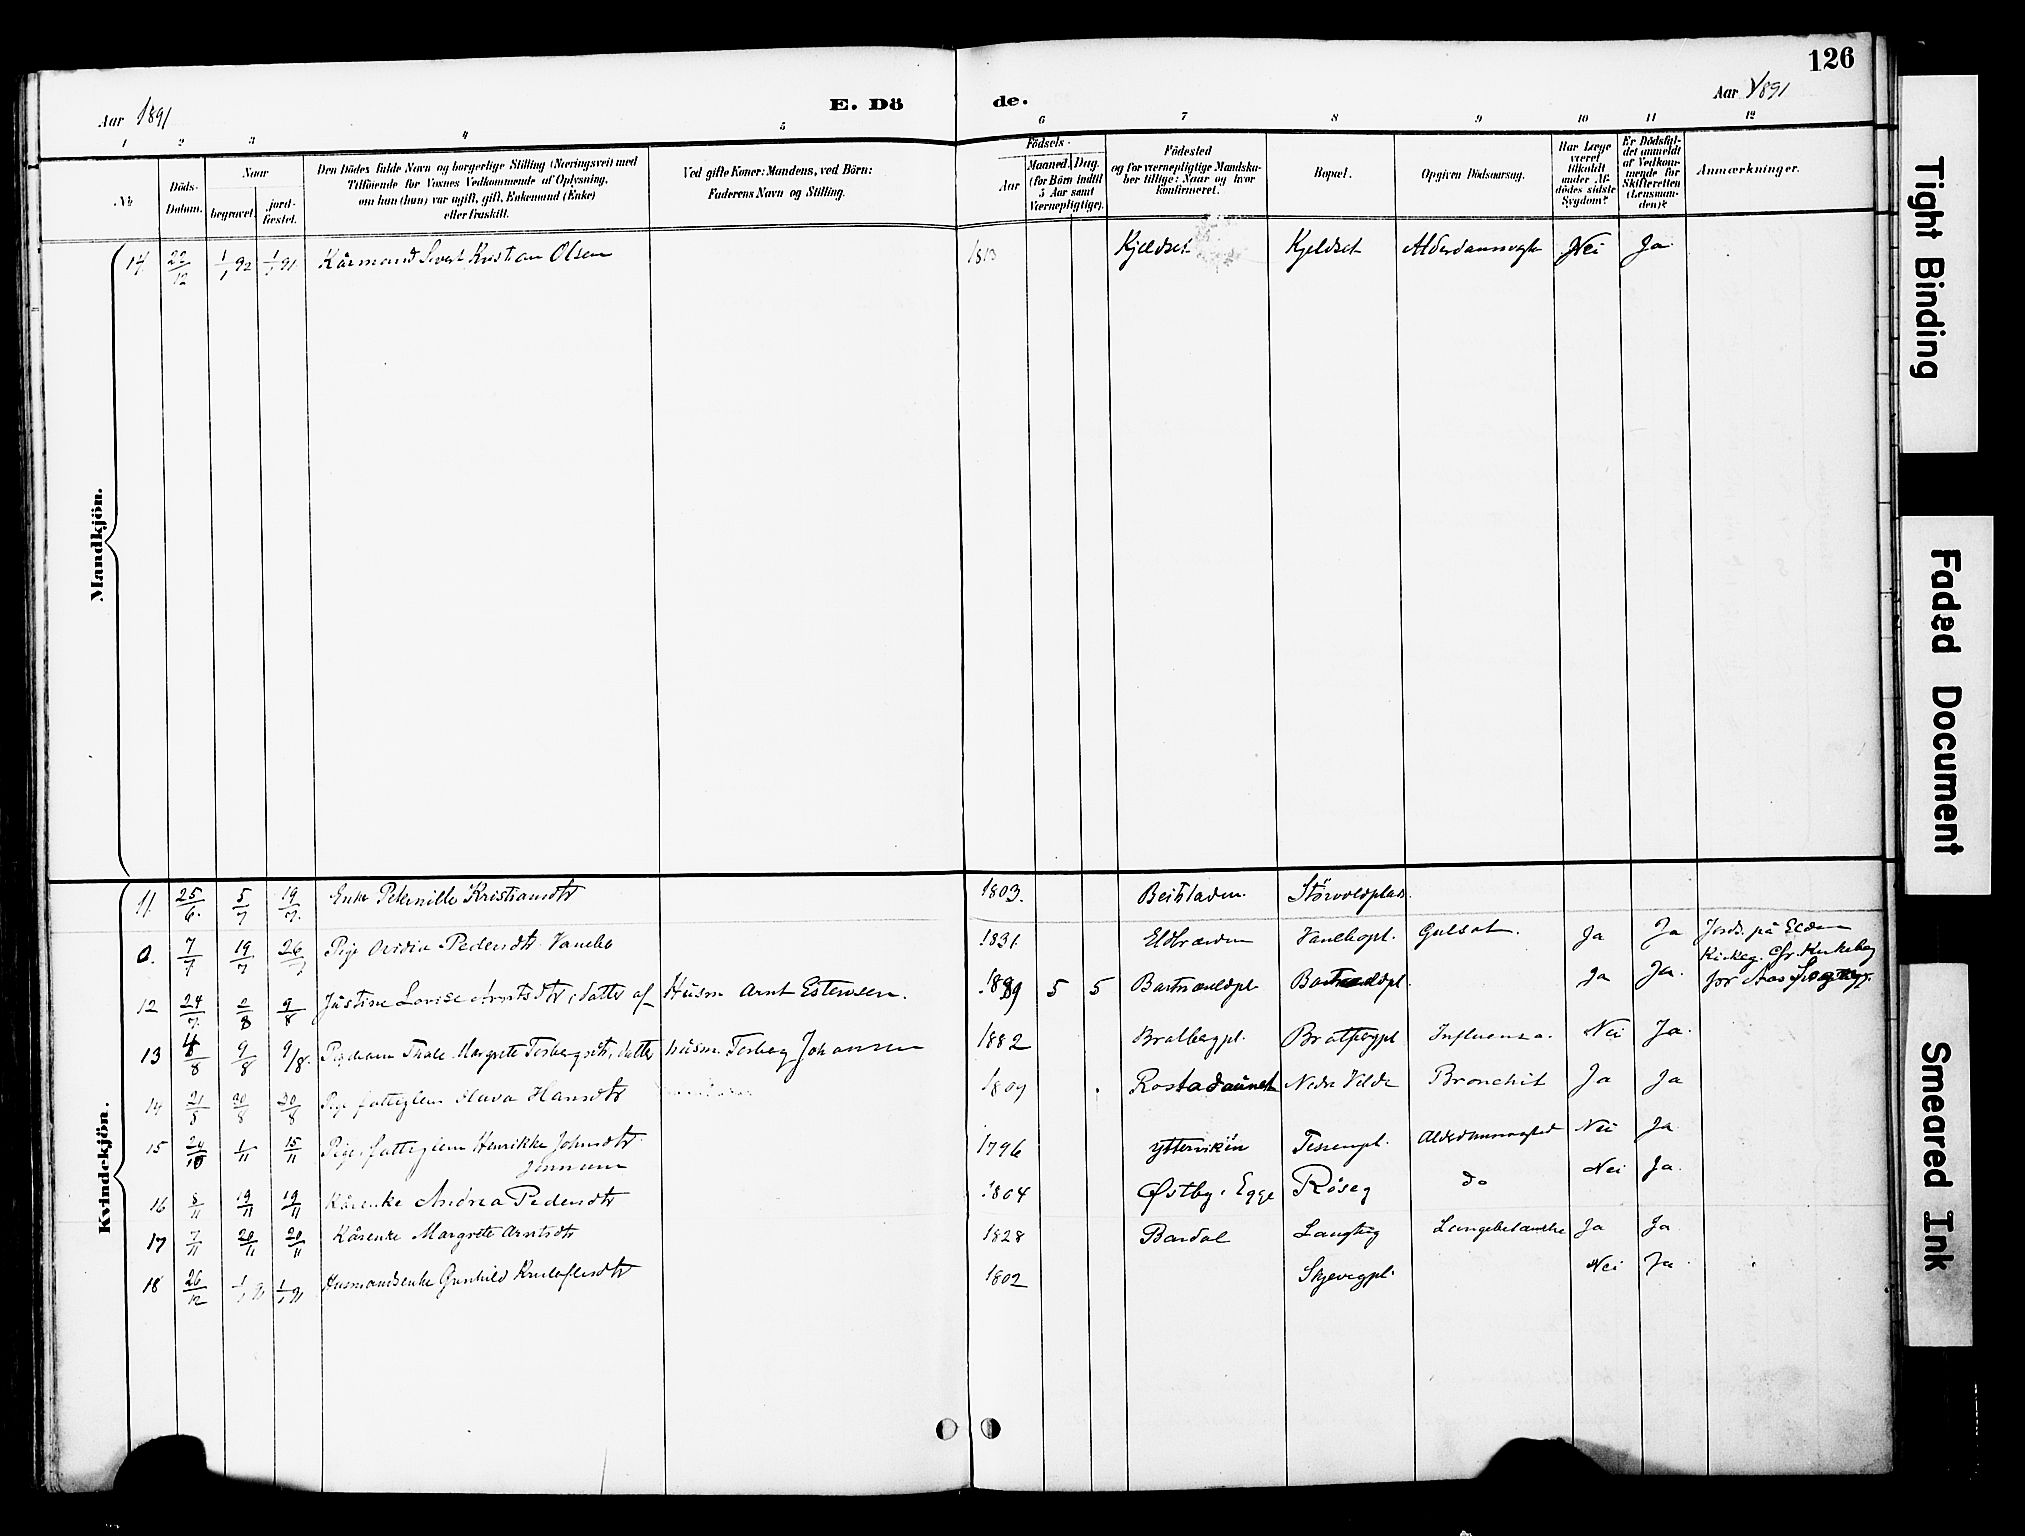 126
Aar 1891
E. Dö
de.
Aar 1891
1 2 3 4 5 6 7 8 9 10 11 12
No
Döds-
Datum.
Naar
begravet.
jord-
fæstet.
Den Dödes fulde Navn og borgerlige Stilling (Næringsvei) med
Tilföiende for Voxnes Vedkommende af Oplysning,
om han (hun) var ugift, gift, Enkemand (Enke)
eller fraskilt.
Ved gifte Koner: Mandens, ved Börn:
Faderens Navn og Stilling.
Födsels-
Aar
Maaned. Dag.
(for Börn indtil
5 Aar samt
Værnepligtige).
Födested
og for værnepligtige Mandska-
ber tillige: Naar og hvor
konfirmeret.
Bopæl.
Opgiven Dödsaarsag.
Har Læge
været
tilkaldt
under Af-
dödes sidste
Sygdom?
Er Dödsfal-
det anmeldt
af Vedkom-
mende for
Skifteretten
(Lensman-
den)?
Anmærkninger.
Mandkjön.
14. 22/12 1/1 92 1/1 91 Kårmand Sivert Kristian Olsen 1813 Kjeldset Kjeldset Nei Ja
Kvindekjön.
11. 25/6. 5/7 19/7. Enke Peternille Kristiansdtr 1803. Beitstaden
0. 7/7 19/7 26/7 Pige Pedersdtr. Vanebo 1831 Vanebopl. Gulsot. Ja Ja Jords. på Elden
Kirkeg.
12 24/7. 2/8 9/8 Justine Lovise Arntsdtr, datter af Husm Arnt Estensen. 1889 5 5 Ja Ja. for Aas Sogn
13 4/8 9/8 9/8. Thale Margrete Torbergsdtr, datter husm. Torberg Johansen 1882 Bratbergpl. Bratbergpl Influenza. Nei Ja.
14 21/8 30/8 30/8 Pige fattiglem Hansdtr 1809 Rostadaunet Nedre Velde Bronchit Ja Ja
15 20/10 1/11 15/11 Pige, fattiglem Henrikke Johnsdtr. 1796 Ytterviken Tessempl. Nei Ja
16 5/11 19/11 19/11 Kårenke Andrea Pedersdtr 1804 Østby i Egge Röseg do Nei Ja.
17 7/11 20/11 20/11 Kårenke Margrete Arntsdtr 1828 Bardal Langbetændelse Ja Ja
18 26/12 Husmandsenke Gunhild 1802 Skjevegpl. Nei Ja.
Tight Binding
Faded Document
Smeared Ink